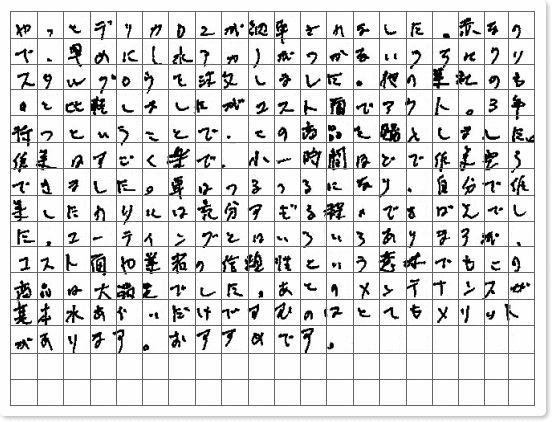 やっとデリカD2が納車されました。赤なの
で、早めにし水アカ)がつかないうちにクリ
スタルグロウを注文しました。他の業社のも
のと比較しましたがコスト面でアウト。3年
持つということで、この商品を購入しました。
作業はすごく楽で、小一時間ほどで作業完了
できました。車はつるつるになり、自分で作
業したわりには充分すぎる程のできばえでし
た。コーティングとはいろいろありますが、
コスト面や業者の信頼性という意味でもこの
商品は大満足でした。あとのメンテナンスが
基本水あらいだけですむのはとてもメリット
があります。おすすめです。